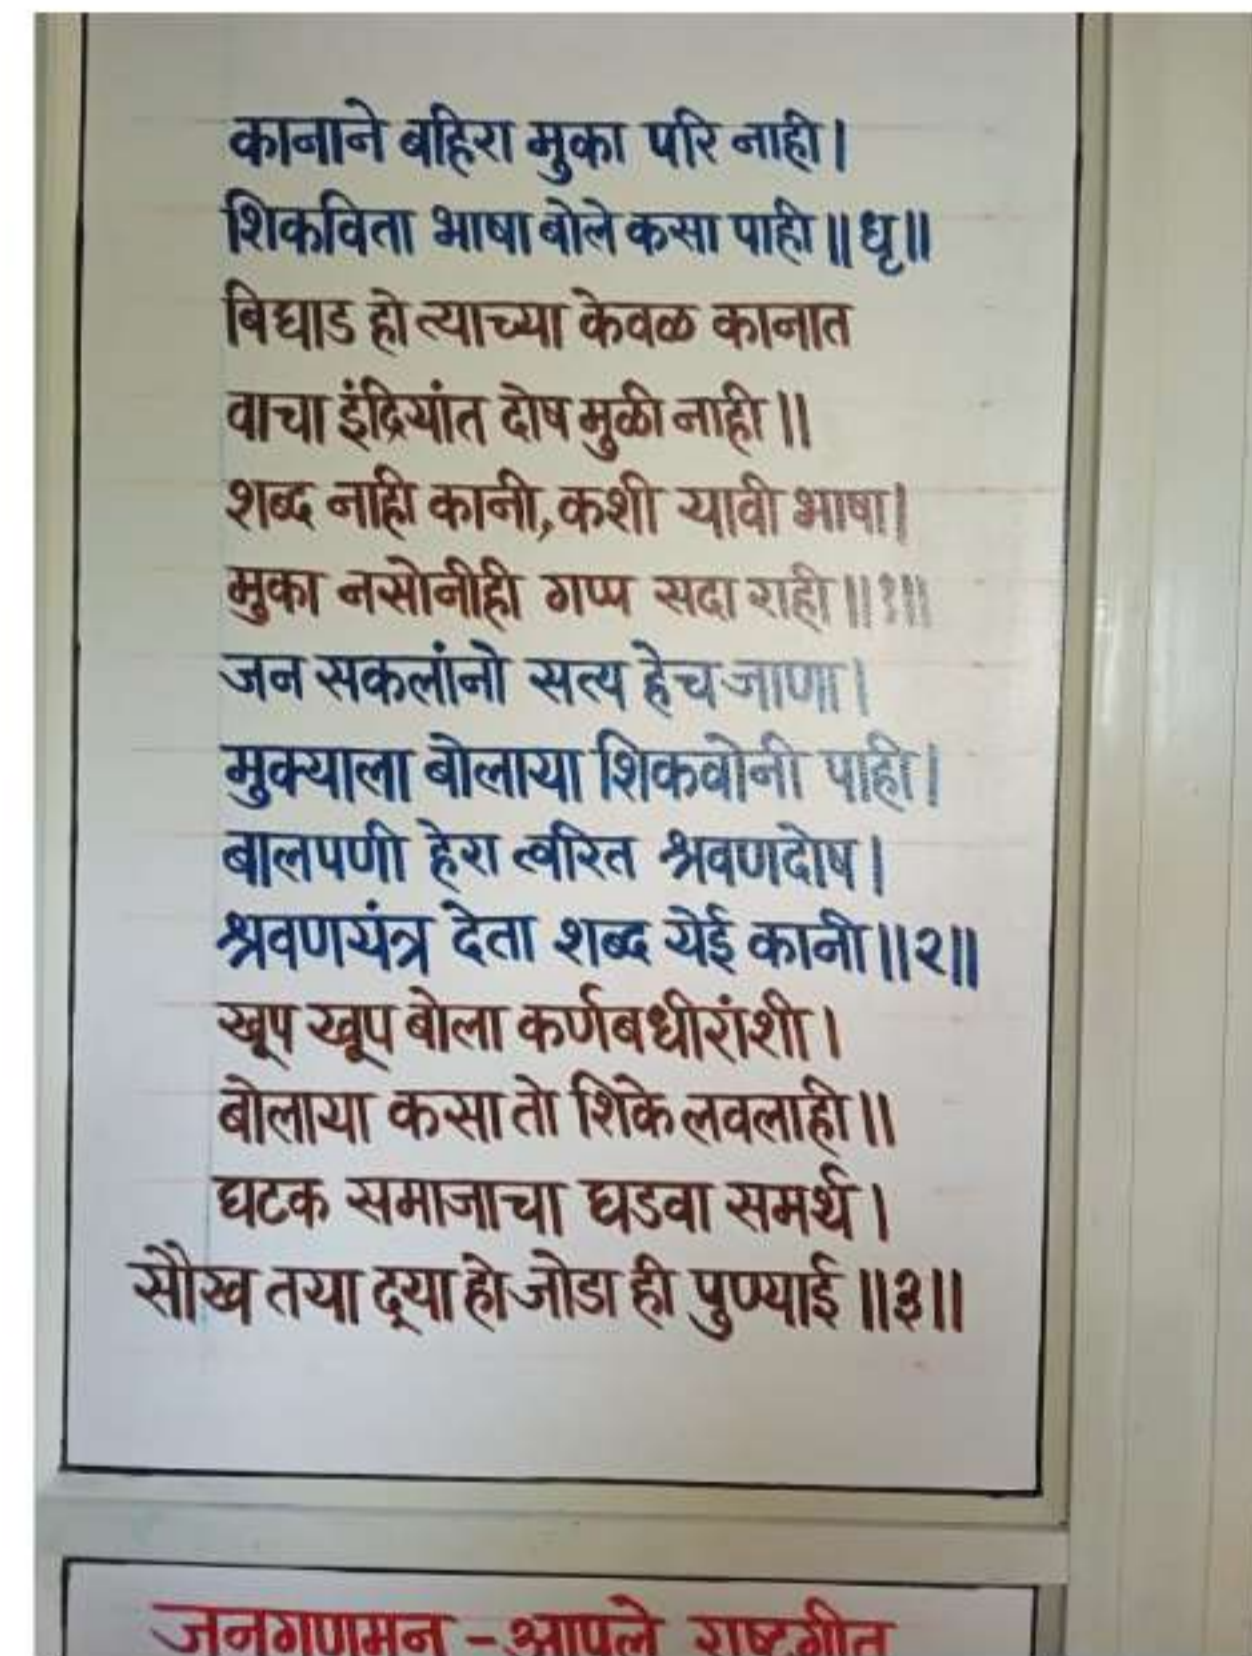 कानाने बहिरा मुका परि नाही।
शिकविता भाषा बोले कसा पाही॥धृ॥
बिघाड हो त्याच्या केवळ कानात
वाचा इंद्रियांत दोष मुळी नाही॥
शब्द नाही कानी, कशी यावी भाषा।
मुका नसोनीही गप्प सदा राही॥१॥
जन सकलांनो सत्य हेच जाणा।
मुक्याला बोलाया शिकवोनी पाही।
बालपणी हेरा त्वरित श्रवणदोष।
श्रवणयंत्र देता शब्द येई कानी॥२॥
खूप खूप बोला कर्णबधीरांशी।
बोलाया कसा तो शिके लवलाही॥
घटक समाजाचा घडवा समर्थ।
सौख तया द्या हो जोडा ही पुण्याई॥३॥
जनगणमन - आपले राष्ट्रगीत